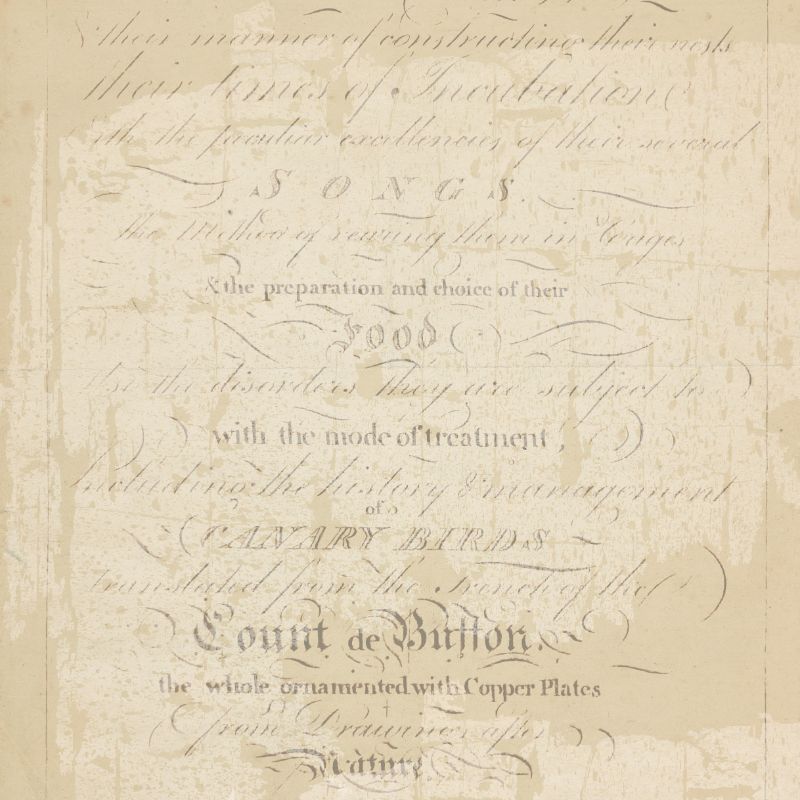 & their manner of constructing their nests
their times of Incubation
with the peculiar excellencies of their several
SONGS.
the Method of rearing them in Cages
& the preparation and choice of their
Food
Also the disorders they are subject to
with the mode of treatment,
Including the history & management
of
CANARY BIRDS
translated from the French of the
Count de Buffon.
the whole ornamented with Copper Plates
from Drawings after
Nature